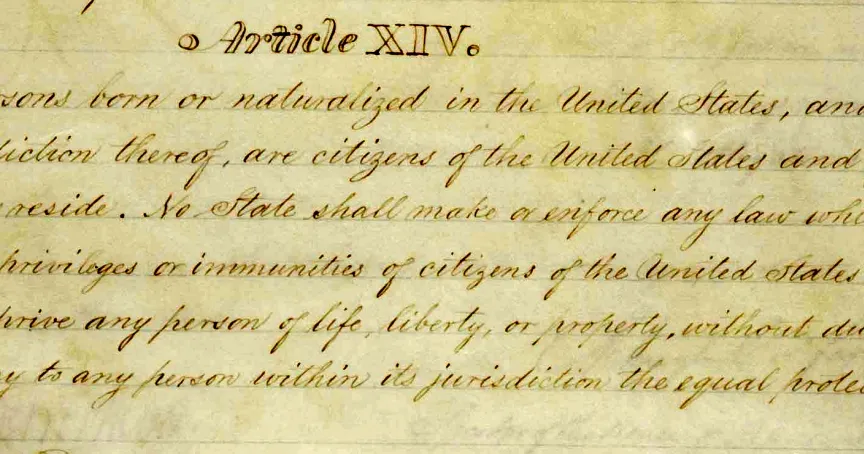 Article XIV.
rsons born or naturalized in the United States, and
diction thereof, are citizens of the United States and
reside. No State shall make or enforce any law whi
privileges or immunities of citizens of the United States
prive any person of life, liberty, or property, without du
ny to any person within its jurisdiction the equal protec